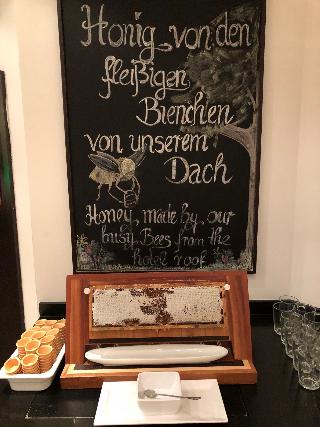 Honig von den
fleißigen
Bienchen
von unserem
Dach
Honey, made by our
busy Bees from the
hotel roof